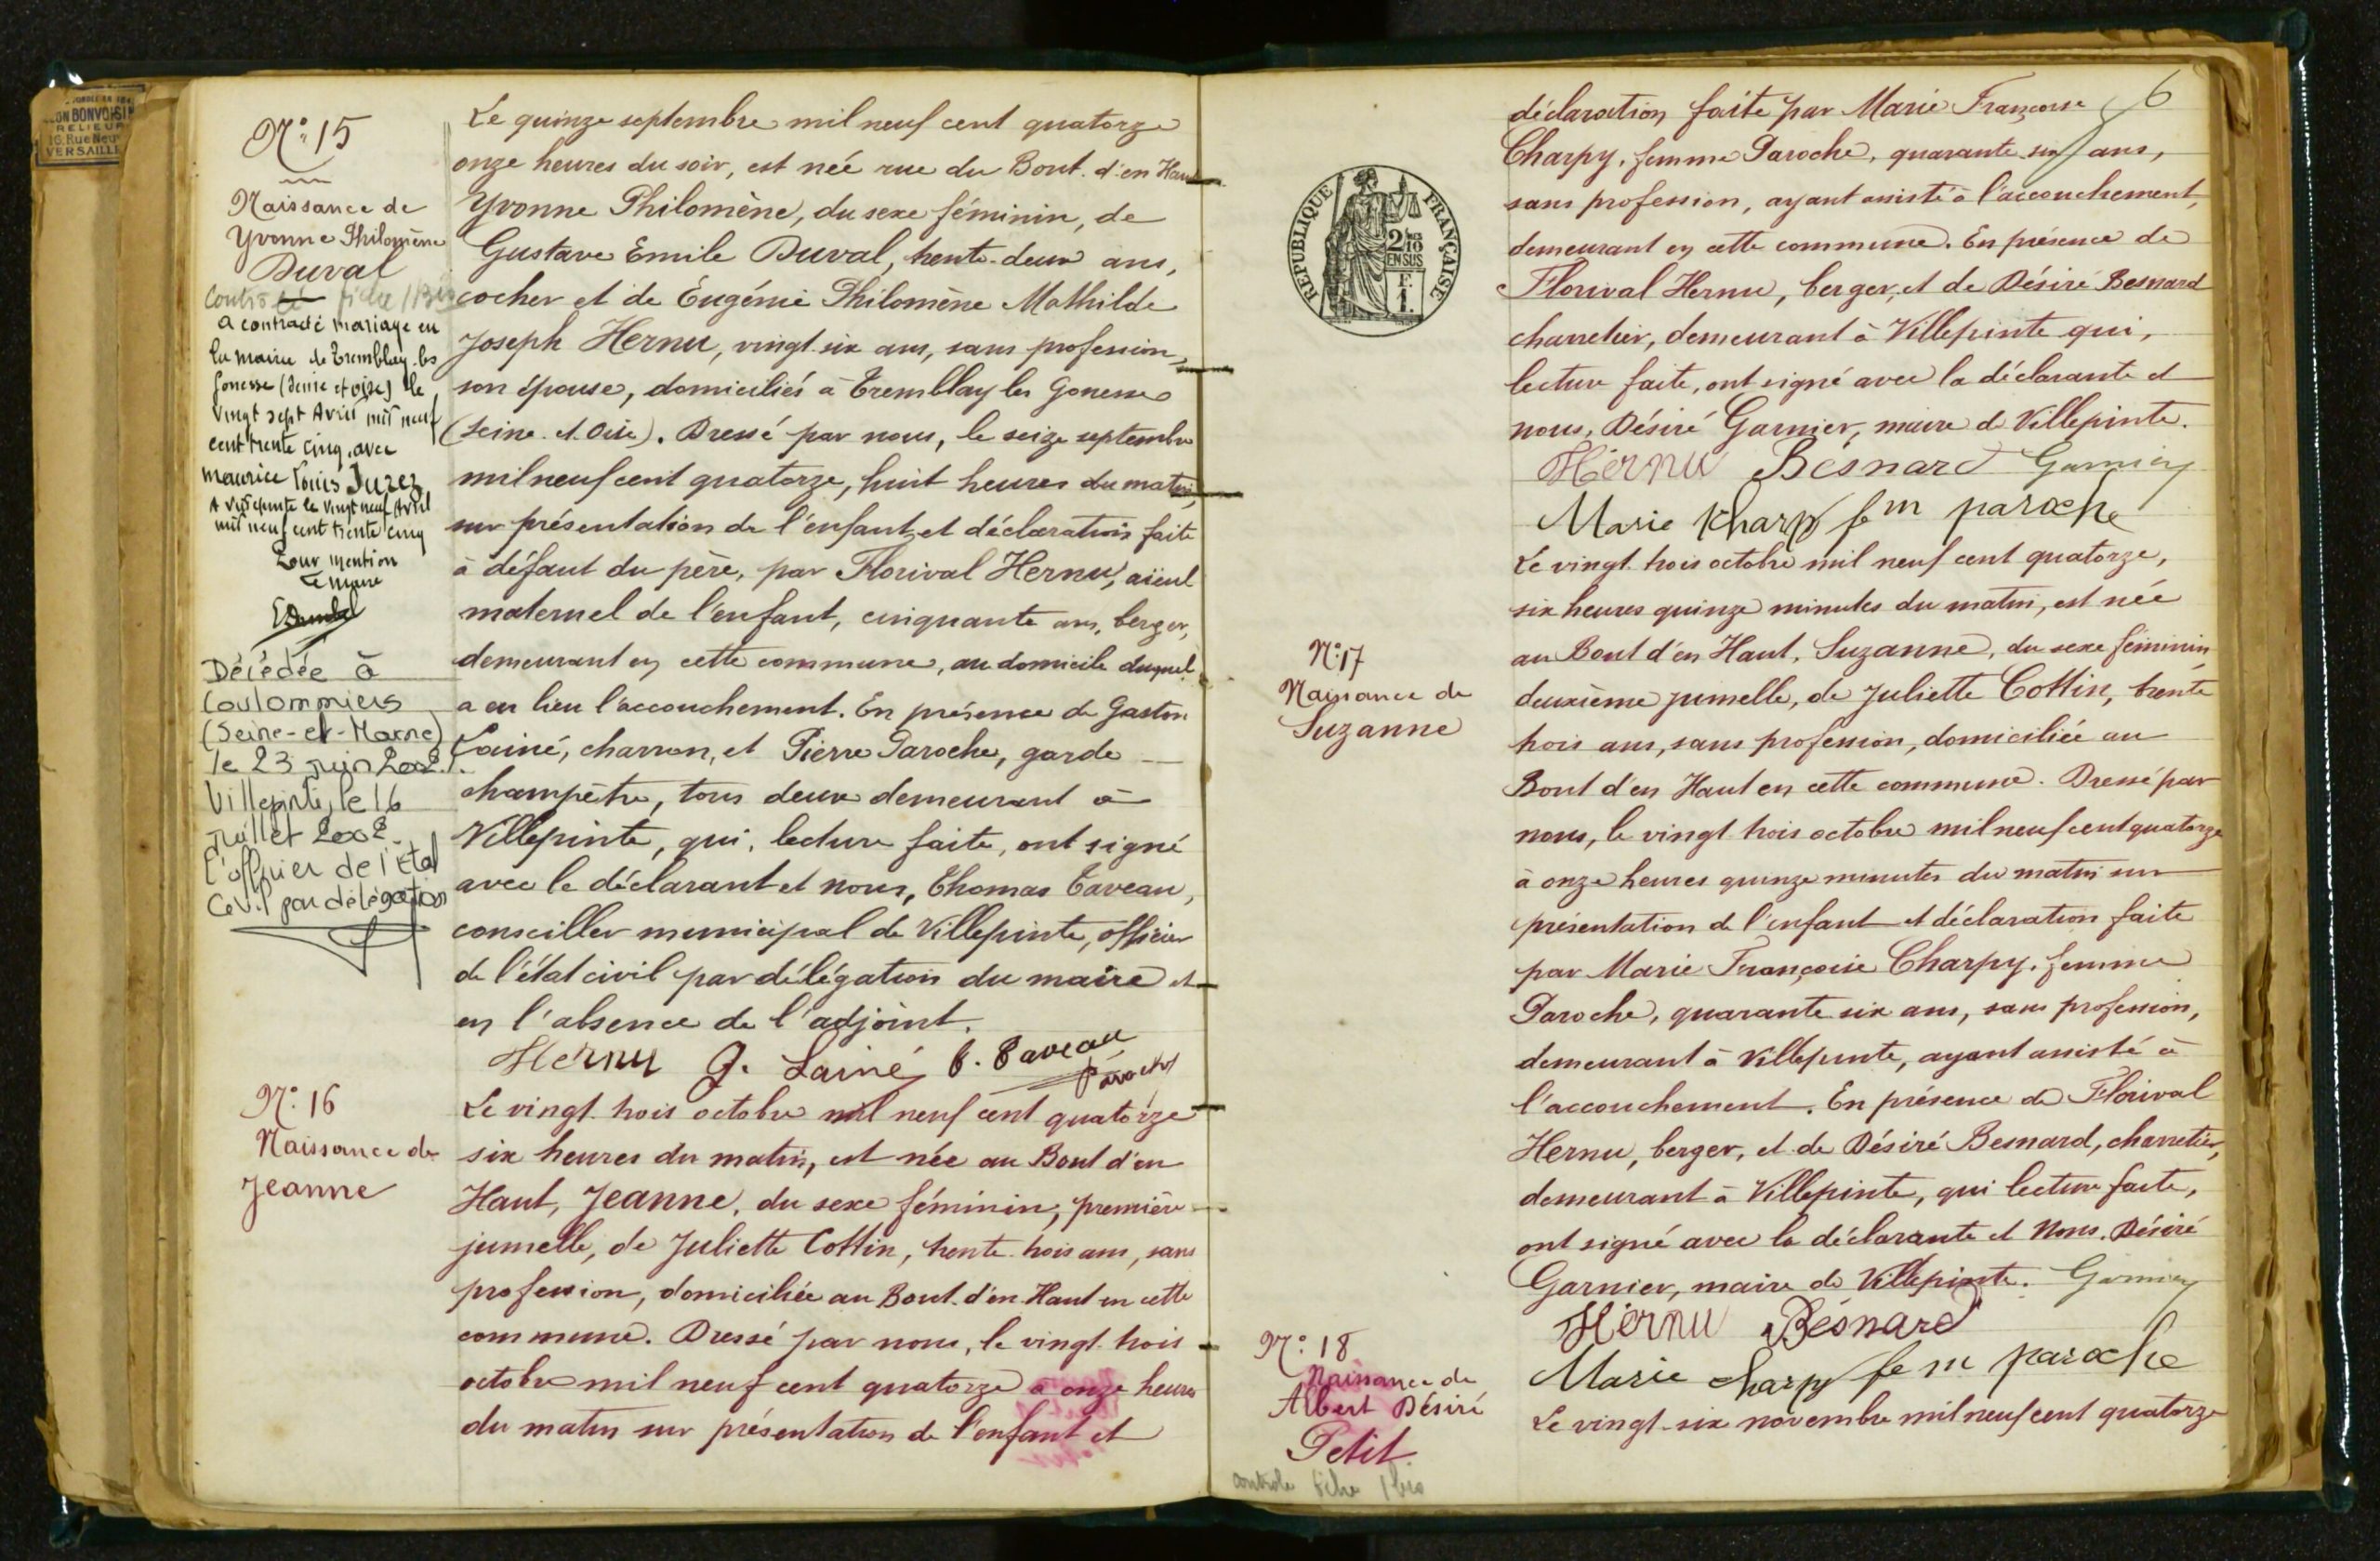 BONVOISIN
RELIEUR
16, Rue Neuve
VERSAILLES
N° 15
Naissance de
Yvonne Philomène
Duval
a contracté mariage en
la mairie de Tremblay-les
Gonesse (Seine et Oise) le
vingt sept Avril mil neuf
cent trente cinq, avec
Maurice Louis
A Villepinte le vingt neuf Avril
mil neuf cent trente cinq
Pour mention
Le Maire
Décédée à
Coulommiers
(Seine-et-Marne)
le 23 juin 2002.
Villepinte, le 16
juillet 2002.
L'officier de l'Etat
Civil par délégation
Le quinze septembre mil neuf cent quatorze
onze heures du soir, est née rue du Bout d'en Haut
Yvonne Philomène, du sexe féminin, de
Gustave Emile Duval, trente-deux ans,
cocher et de Eugénie Philomène Mathilde
Joseph Hernu, vingt six ans, sans profession,
son épouse, domiciliés à Tremblay les Gonesse
(Seine-et-Oise). Dressé par nous, le seize septembre
mil neuf cent quatorze, huit heures du matin,
sur présentation de l'enfant et déclaration faite
à défaut du père, par Florival Hernu, aïeul
maternel de l'enfant, cinquante ans, berger,
demeurant en cette commune, au domicile duquel
a eu lieu l'accouchement. En présence de Gaston
Lainé, charron, et Pierre Paroche, garde
champêtre, tous deux demeurant à
Villepinte, qui, lecture faite, ont signé
avec le déclarant et nous, Thomas Taveau,
conseiller municipal de Villepinte, officier
de l'état civil par délégation du maire et
en l'absence de l'adjoint.
Hernu G. Lainé T. Taveau
Paroche
N° 16
Naissance de
Jeanne
Le vingt trois octobre mil neuf cent quatorze
six heures du matin, est née au Bout d'en
Haut, Jeanne, du sexe féminin, première
jumelle, de Juliette Cottin, trente trois ans, sans
profession, domiciliée au Bout d'en Haut en cette
commune. Dressé par nous, le vingt trois
octobre mil neuf cent quatorze à onze heures
du matin sur présentation de l'enfant et
6
RÉPUBLIQUE FRANÇAISE
2/10
EN SUS
F.
1.
déclaration faite par Marie Françoise
Charpy, femme Paroche, quarante six ans,
sans profession, ayant assisté à l'accouchement,
demeurant en cette commune. En présence de
Florival Hernu, berger, et de Désiré Besnard
charretier, demeurant à Villepinte qui,
lecture faite, ont signé avec la déclarante et
nous, Désiré Garnier, maire de Villepinte.
Hernu Besnard Garnier
Marie Kharpy fem paroche
N° 17
Naissance de
Suzanne
Le vingt trois octobre mil neuf cent quatorze,
six heures quinze minutes du matin, est née
au Bout d'en Haut, Suzanne, du sexe féminin,
deuxième jumelle, de Juliette Cottin, trente
trois ans, sans profession, domiciliée au
Bout d'en Haut en cette commune. Dressé par
nous, le vingt trois octobre mil neuf cent quatorze
à onze heures quinze minutes du matin sur
présentation de l'enfant et déclaration faite
par Marie Françoise Charpy, femme
Paroche, quarante six ans, sans profession,
demeurant à Villepinte, ayant assisté à
l'accouchement. En présence de Florival
Hernu, berger, et de Désiré Besnard, charretier,
demeurant à Villepinte, qui lecture faite,
ont signé avec la déclarante et Nous. Désiré
Garnier, maire de Villepinte. Garnier
Hernu Besnard
Marie charpy fem paroche
N° 18
Naissance de
Albert Désiré
Petit
controle fiche
Le vingt-six novembre mil neuf cent quatorze